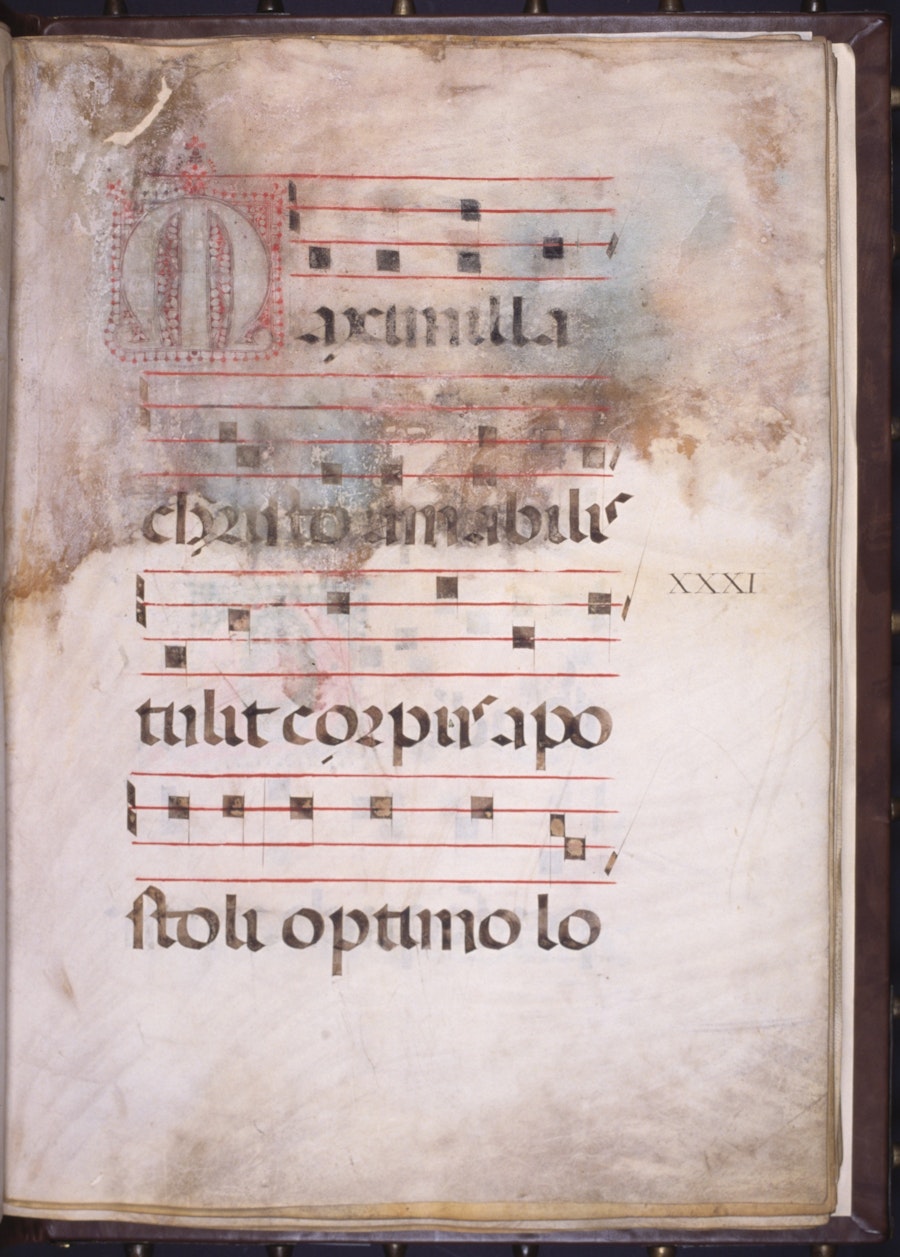 Maximilla
christo amabilis
tulit corpus apo
XXXI
stoli optimo lo